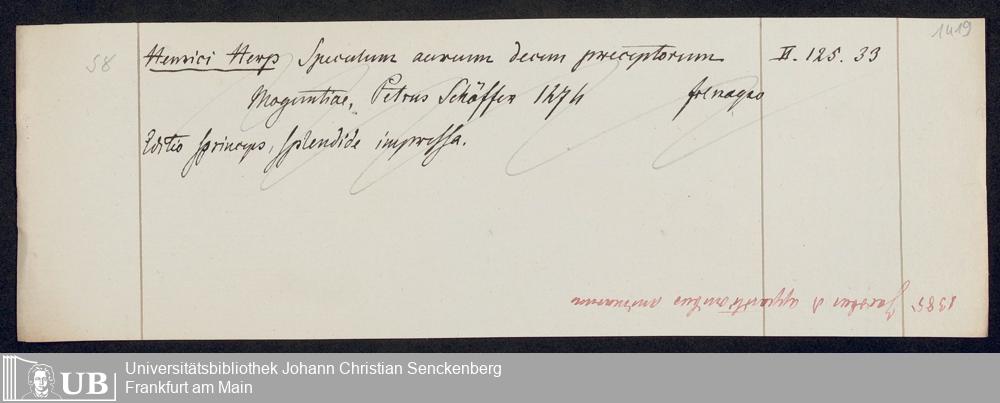 1419
58 Henrici Herp Speculum aureum decem preceptorum II. 125. 33
Moguntiae, Petrus Schöffer 1474 fol magno
Editio princeps, splendide impressa.
1385 Jacobus d apparitionibus animarum
UB Universitätsbibliothek Johann Christian Senckenberg
Frankfurt am Main